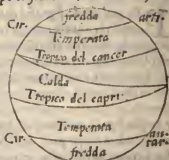 Cir. fredda arti-
Temperata
Tropico del cancer
Calda
Tropico del capri-
Temperata
Cir. an-
tar.
fredda